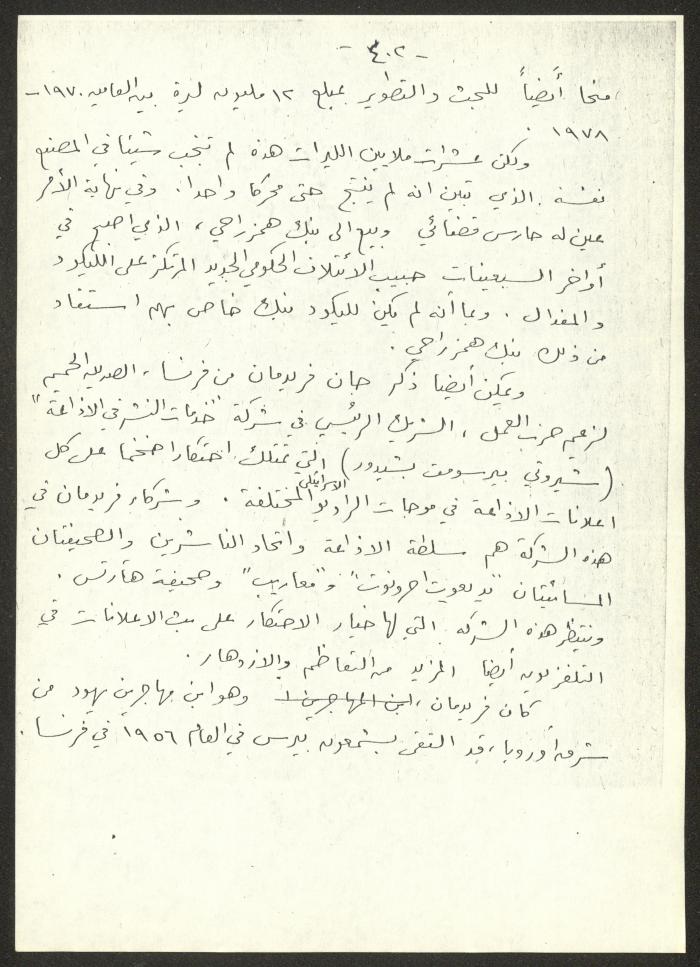 - ٤٠٢ -
منحا أيضاً للبحث والتطوير بمبلغ ١٢ مليون ليرة بين العامين ١٩٧٠ -
١٩٧٨ .
ولكن عشرات ملايين الليرات هذه لم تنجب شيئا في المصنع
نفسه . الذي تبين انه لم ينتج حتى محركا واحدا . وفي نهاية الأمر
عين له حارس قضائي وبيع الى بنك همزراحي ، الذي اصبح في
أواخر السبعينات حبيب الائتلاف الحكومي الجديد المرتكز على الليكود
والمفدال . وبما أنه لم يكن لليكود بنك خاص بهم استفاد
من ذلك بنك همزراحي .
ويمكن أيضا ذكر جان فريدمان من فرنسا ، الصديق الحميم
لزعيم حزب العمل ، الشريك الرئيسي في شركة "خدمات النشر في الاذاعة"
(شيروتي بيرسومت بشيدور) التي تمتلك احتكارا ضخما على كل
اعلانات الاذاعة في موجات الراديو الاسرائيلي المختلفة . وشركاء فريدمان في
هذه الشركة هم سلطة الاذاعة واتحاد الناشرين والصحيفتان
المسائيتان "يديعوت احرونوت" و"معاريب" وصحيفة هآرتس .
وينتظر هذه الشركة التي لها خيار الاحتكار على بث الاعلانات في
التلفزيون أيضا المزيد من التعاظم والازدهار .
كان فريدمان ، ابن المهاجرين وهو ابن مهاجرين يهود من
شرق أوروبا ، قد التقى بشمعون بيرس في العام ١٩٥٦ في فرنسا .